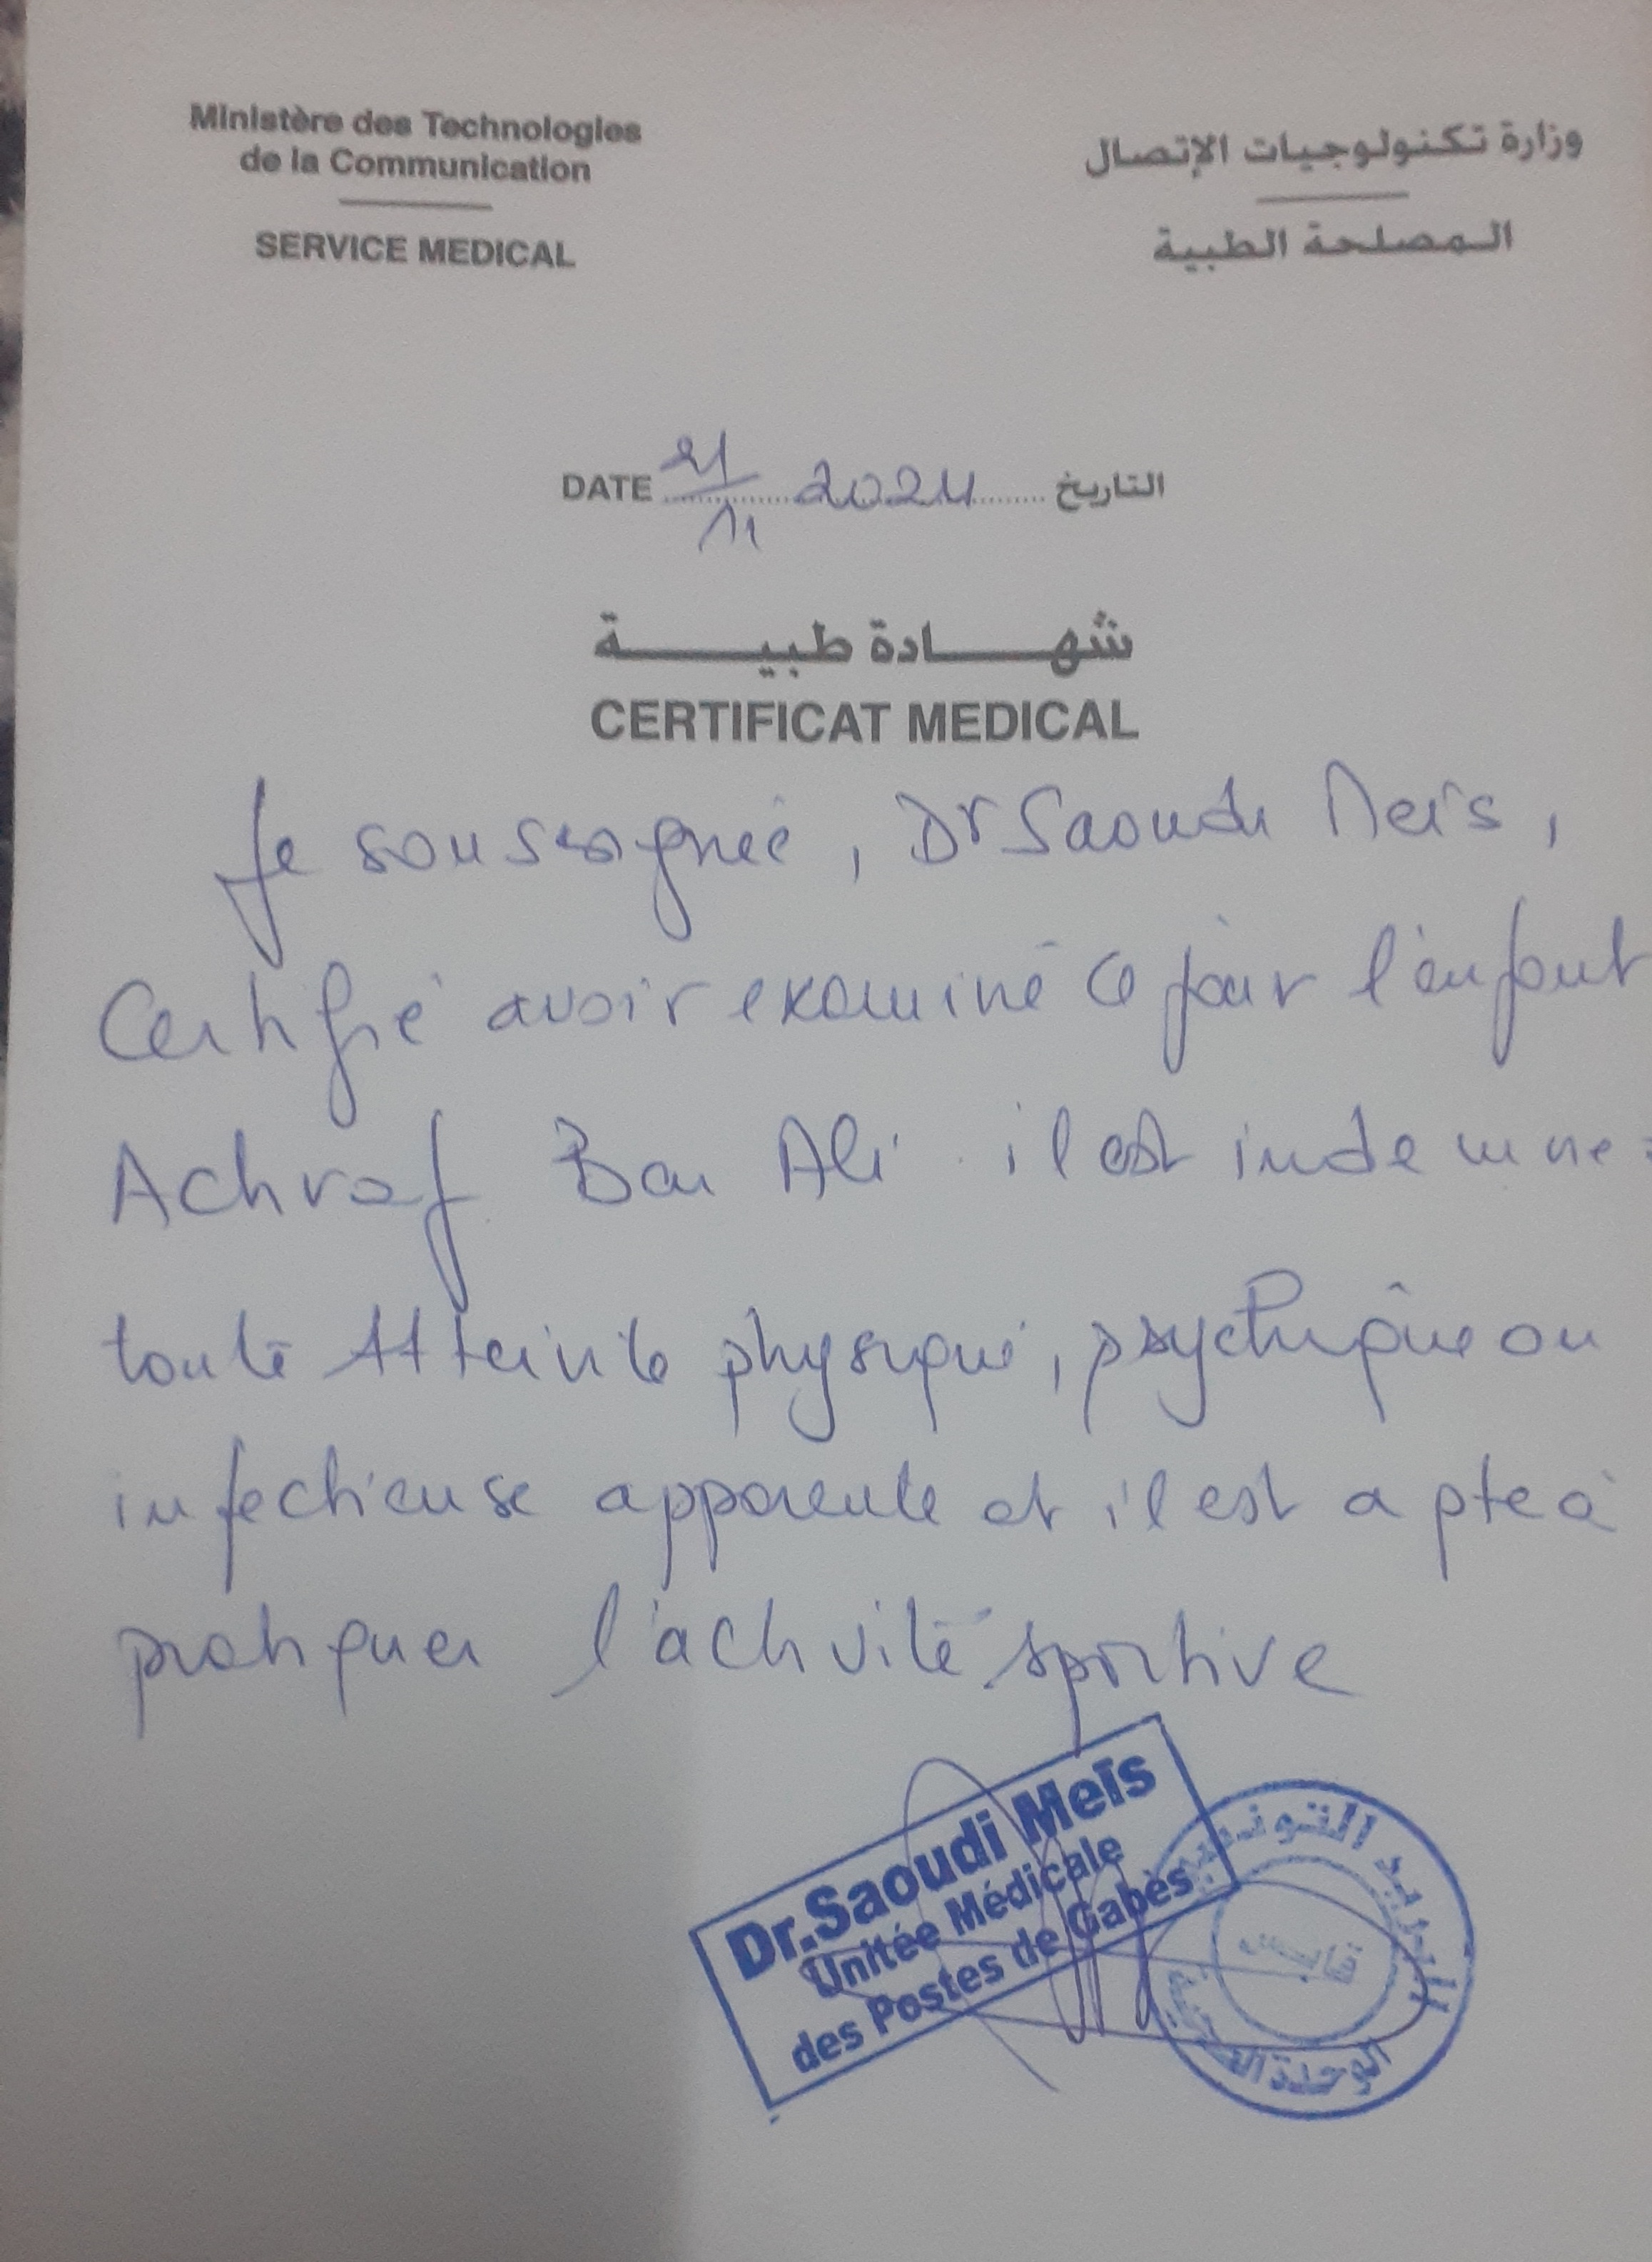 Ministère des Technologies
de la Communication
SERVICE MEDICAL
وزارة تكنولوجيات الإتصال
المصلحة الطبية
DATE 21/11 2024 التاريخ
شهادة طبية
CERTIFICAT MEDICAL
Je soussignée, Dr Saoudi Meïs,
Certifie avoir examiné ce jour l'enfant
Achraf Ben Ali il est indemne
toute Atteinte physique, psychique ou
infectieuse apparente et il est apte à
pratiquer l'activité sportive
Dr.Saoudi Meïs
Unitée Médicale
des Postes de Gabès
البريد التونسي
قابس
الوحدة